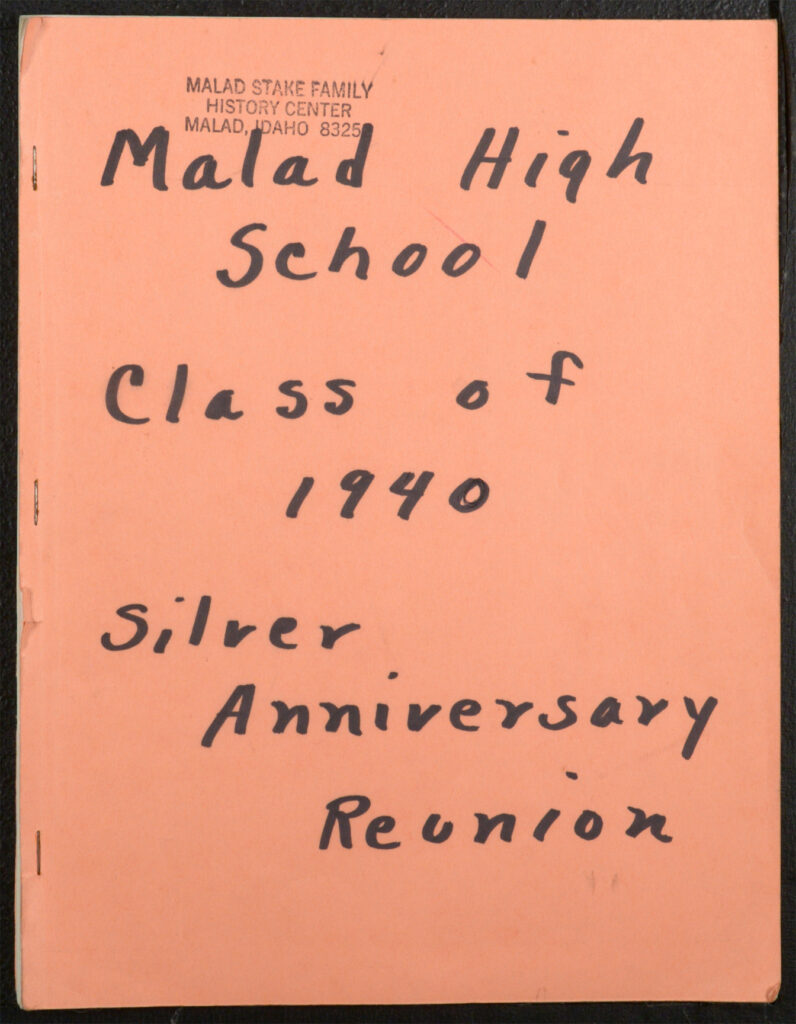 MALAD STAKE FAMILY
HISTORY CENTER
MALAD, IDAHO 8325
Malad High
School
Class of
1940
Silver
Anniversary
Reunion